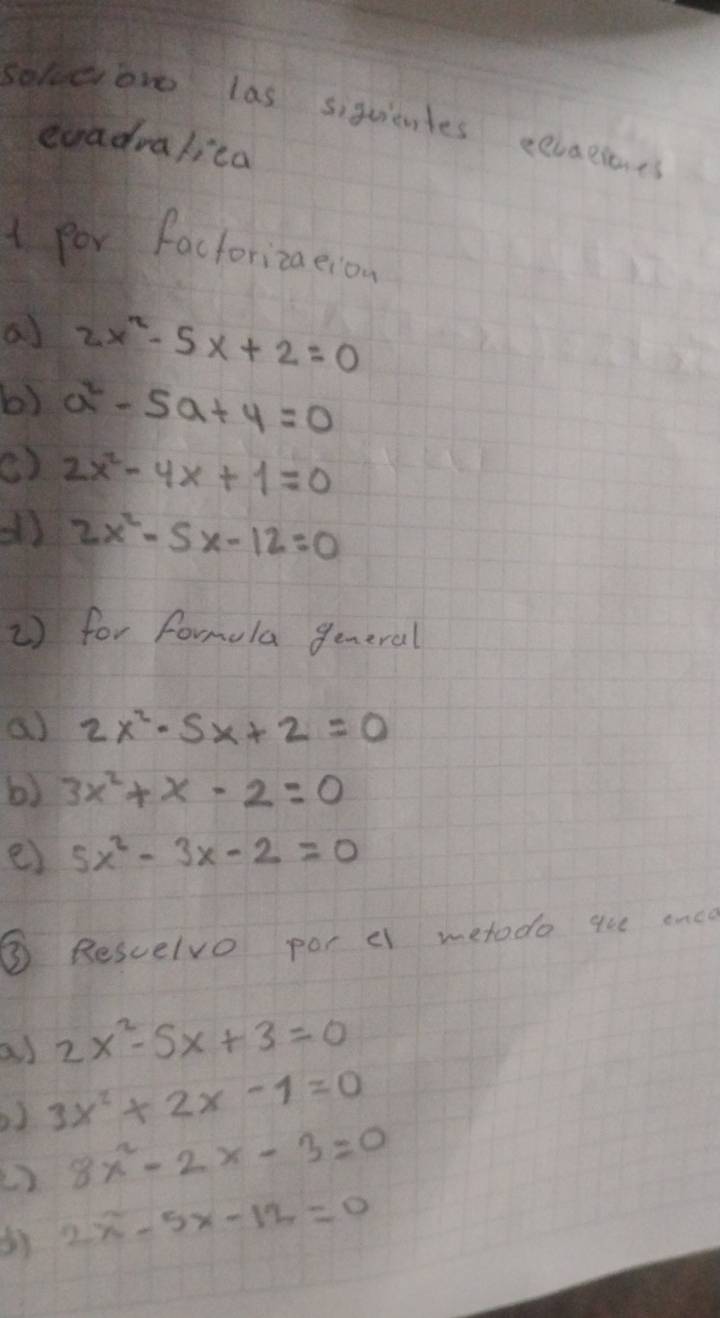 soluciono las siguientes ecuaciones
cuadratica
1 por factorizacion
a) 2x² - 5x + 2 = 0
b) a² - 5a + 4 = 0
c) 2x² - 4x + 1 = 0
d) 2x² - 5x - 12 = 0
2) for formula general
a) 2x² - 5x + 2 = 0
b) 3x² + x - 2 = 0
c) 5x² - 3x - 2 = 0
③ Resuelvo por el metodo que
a) 2x² - 5x + 3 = 0
b) 3x² + 2x - 1 = 0
c) 8x² - 2x - 3 = 0
d) 2x² - 5x - 12 = 0